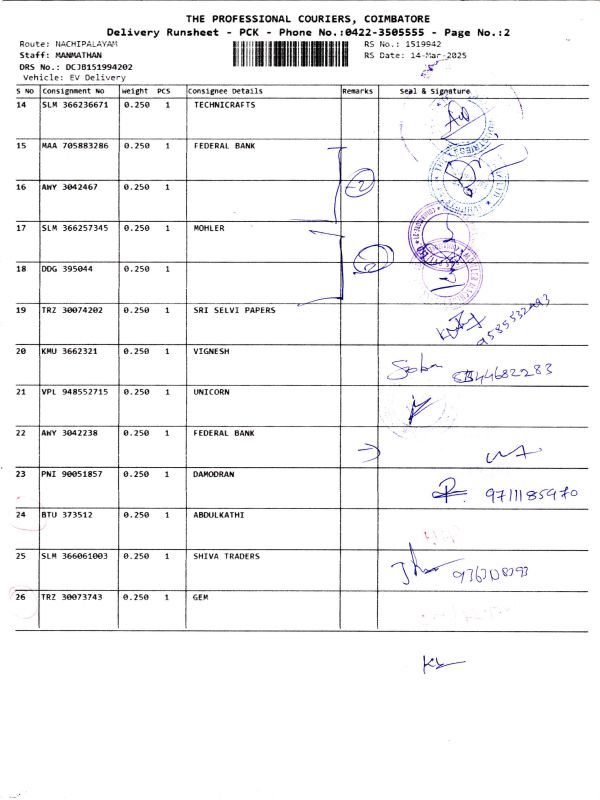 THE PROFESSIONAL COURIERS, COIMBATORE
Delivery Runsheet - PCK - Phone No.:0422-3505555 - Page No.:2
Route: NACHIPALAYAM RS No.: 1519942
Staff: MANMATHAN RS Date: 14-Mar-2025
DRS No.: DCJB151994202
Vehicle: EV Delivery
S No Consignment No Weight PCS Consignee Details Remarks Seal & Signature
14 SLM 366236671 0.250 1 TECHNICRAFTS
15 MAA 705883286 0.250 1 FEDERAL BANK
16 AWY 3042467 0.250 1
17 SLM 366257345 0.250 1 MOHLER
18 DDG 395044 0.250 1
19 TRZ 30074202 0.250 1 SRI SELVI PAPERS
20 KMU 3662321 0.250 1 VIGNESH
21 VPL 948552715 0.250 1 UNICORN
22 AWY 3042238 0.250 1 FEDERAL BANK
23 PNI 90051857 0.250 1 DAMODRAN 9711185970
24 BTU 373512 0.250 1 ABDULKATHI
25 SLM 366061003 0.250 1 SHIVA TRADERS
26 TRZ 30073743 0.250 1 GEM